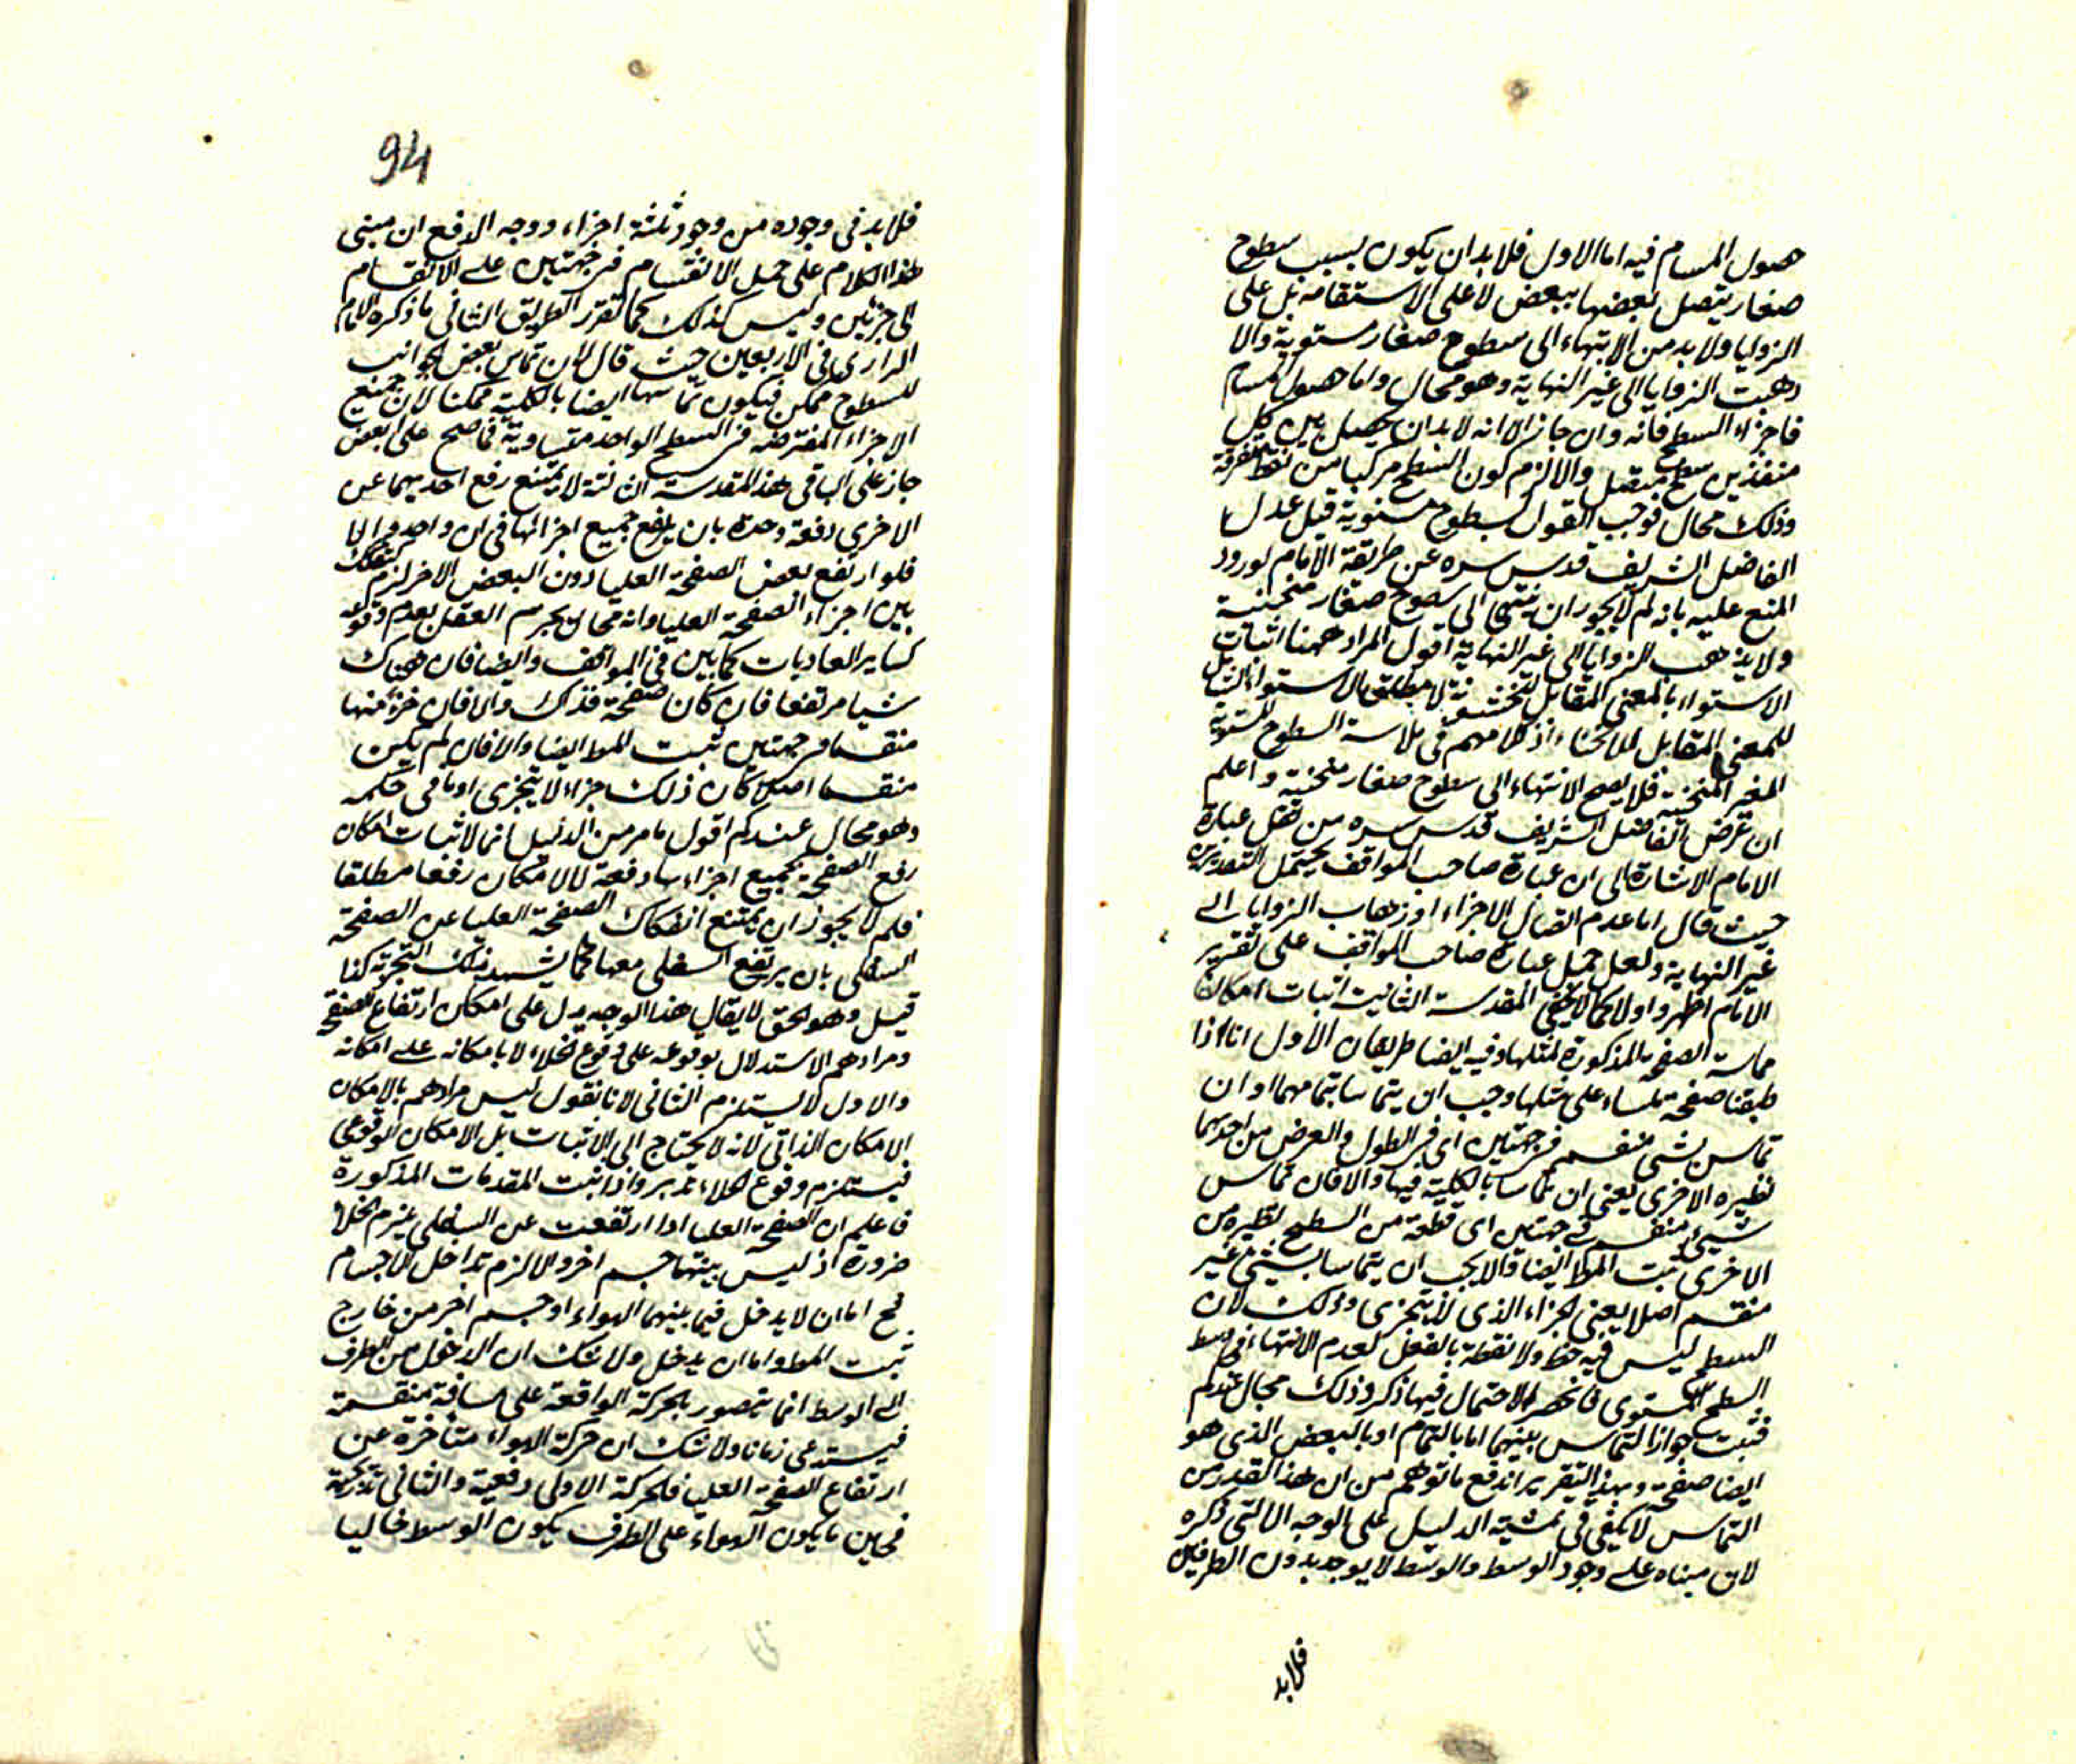 حصول المسام فيه اما الاول فلا بد ان يكون بسبب سطوح
صغار يتصل بعضها ببعض لا على الاستقامة بل على
الزوايا ولا بد من الانتهاء الى سطوح صغار مستوية والا
ذهبت الزوايا الى غير النهاية وهو محال واما حصول المسام
فاجزاء السطح فانه وان جاز الا انه لا بد ان يحصل بين كل
منفذين سطح متصل والا لزم كون السطح مركبا من نقط متفرقة
وذلك محال فوجب القول بسطوح مستوية قيل عدل
الفاضل الشريف قدس سره عن طريقة الامام لورود
المنع عليه بانه لم لا يجوز ان ينتهى الى سطوح صغار منحنية
ولا يذهب الزوايا الى غير النهاية اقول المراد ههنا اثبات
الاستواء بالمعنى المقابل للخشونة لا مطلق الاستواء الشامل
للمعنى المقابل للانحناء اذ كلامهم فى ملاسة السطوح المستوية
الغير المنحنية فلا يصح الانتهاء الى سطوح صغار منحنية واعلم
ان غرض الفاضل الشريف قدس سره من نقل عبارة
الامام الاشارة الى ان عبارة صاحب المواقف يحتمل التقديرين
حيث قال اما عدم اتصال الاجزاء او ذهاب الزوايا الى
غير النهاية ولعل حمل عبارة صاحب المواقف على تقرير
الامام اظهر واولا كما لا يخفى المقدمة الثانية اثبات امكان
مماسة الصفحة المذكورة لمثلها وفيه ايضا طريقان الاول انا اذا
طبقنا صفحة ملساء على مثلها وجب ان يتماسا بتمامهما او ان
تماس بشئ منقسم فى جهتين اى فى الطول والعرض من احديهما
نظيره الاخرى يعنى ان تماسا بالكلية فيها والا فان تماس
شيئ منقسم فى جهتين اى قطعة من السطح نظيره من
الاخرى ثبت المط ايضا والا يجب ان يتماسا بشيئ غير
منقسم اصلا يعنى الجزء الذى لا يتجزى وذلك لان
السطح ليس فيه خط ولا نقطة بالفعل لعدم الانتهاء فى وسط
السطح المستوى فانحصر الاحتمال فيما ذكر وذلك محال عندكم
فثبت جواز التماس بينهما اما بالتمام او بالبعض الذى هو
ايضا صفحة وبهذا التقرير اندفع ما توهم من ان هذا القدر من
التماس لا يكفى فى تمشية الدليل على الوجه الاتى ذكره
لان مبناه على وجود الوسط والوسط لا يوجد بدون الطرفين
فلا بد
94
فلا بد فى وجوده من وجود ثلثة اجزاء ووجه الدفع ان مبنى
هذا الكلام على حمل الانقسام فى جهتين على الانقسام
الى جزئين وليس كذلك كما تقرر الطريق الثانى ما ذكره الامام
الرازى فى الاربعين حيث قال لان تماس بعض الجوانب
للسطوح ممكن فيكون تماسها ايضا بالكلية ممكنا لان جميع
الاجزاء المفترضة فى السطح الواحد متساوية فما صح على البعض
جاز على الباقى هذا المقدمة الثالثة لا يمتنع رفع احديهما عن
الاخرى دفعة واحدة بان يرفع جميع اجزائها فى ان واحد والا
فلو ارتفع بعض الصفحة العليا دون البعض الاخر لزم تفكك
بين اجزاء الصفحة العليا وانه محال يجزم العقل بعدم وقوعه
كساير العاديات كما بين فى المواقف وايضا فان هناك
شيا مرتفعا فان كان صفحة فذاك والا فان جزء منها
منقسما فى جهتين ثبت المط ايضا والا فان لم يكن
منقسما اصلا كان ذلك جزاء لا يتجزى او ما فى حكمه
وهو محال عندكم اقول ما مر من الدليل انما لاثبات امكان
رفع الصفحة بجميع اجزاءها دفعة لا لامكان رفعها مطلقا
فلم لا يجوز ان يمتنع انفكاك الصفحة العليا عن الصفحة
السفلى بان يرتفع السفلى معها كما يشهد بذلك التجربة كذا
قيل وهو الحق لا يقال هذا الوجه يدل على امكان ارتفاع الصفحة
ومرادهم الاستدلال بوقوعه على وقوع الخلاء لا بامكانه على امكانه
والاول لا يستلزم الثانى لانا نقول ليس مرادهم بالامكان
الامكان الذاتى لانه لا يحتاج الى الاثبات بل الامكان الوقوعى
فيستلزم وقوع الخلاء تدبر واذا ثبت المقدمات المذكورة
فاعلم ان الصفحة العليا اذا ارتفعت عن السفلى يلزم الخلاء
ضرورة اذ ليس بينهما جسم اخر والا لزم تداخل الاجسام
فح اما ان لا يدخل فيما بينهما الهواء او جسم اخر من خارج
ثبت المط واما ان يدخل ولا شك ان الدخول من الطرف
الى الوسط انما يتصور بالحركة الواقعة على مسافة منقسمة
فيستدعى زمانا ولا شك ان حركة الهواء متاخرة عن
ارتفاع الصفحة العليا فالحركة الاولى دفعية والثانى تدريجية
فحين ما يكون الهواء على الطرف يكون الوسط خاليا